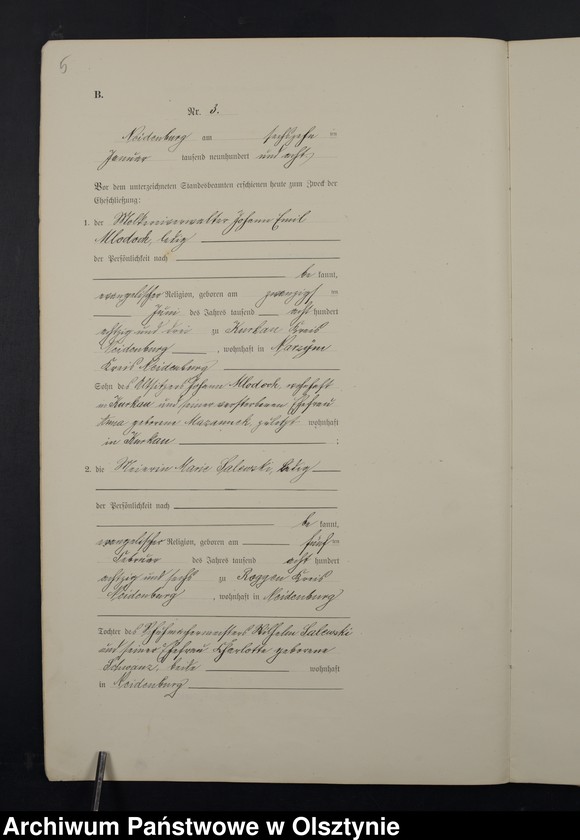 5
B.
Nr. 3.
Neidenburg am sechszehn ten
Januar tausend neunhundert und acht
Vor dem unterzeichneten Standesbeamten erschienen heute zum Zweck der
Eheschließung:
1. der Molkereiverwalter Johann Emil
Mlodoch, ledig
der Persönlichkeit nach
be kannt,
evangelischer Religion, geboren am zwanzigs ten
Juni des Jahres tausend acht hundert
achtzig und drei zu Kurkau Kreis
Neidenburg, wohnhaft in Narzym
Kreis Neidenburg
Sohn des Altsitzers Johann Mlodoch, wohnhaft
in Kurkau und seiner verstorbenen Ehefrau
Anna geborene zuletzt wohnhaft
in Kurkau ;
2. die Meierin Marie Salewski, ledig
der Persönlichkeit nach
be kannt,
evangelischer Religion, geboren am fünf ten
Februar des Jahres tausend acht hundert
achtzig und sechs zu Roggen Kreis
Neidenburg, wohnhaft in Neidenburg
Tochter des Schuhmachermeisters Wilhelm Salewski
und seiner Ehefrau Charlotte geborene
Schwanz, beide wohnhaft
in Neidenburg
Archiwum Państwowe w Olsztynie